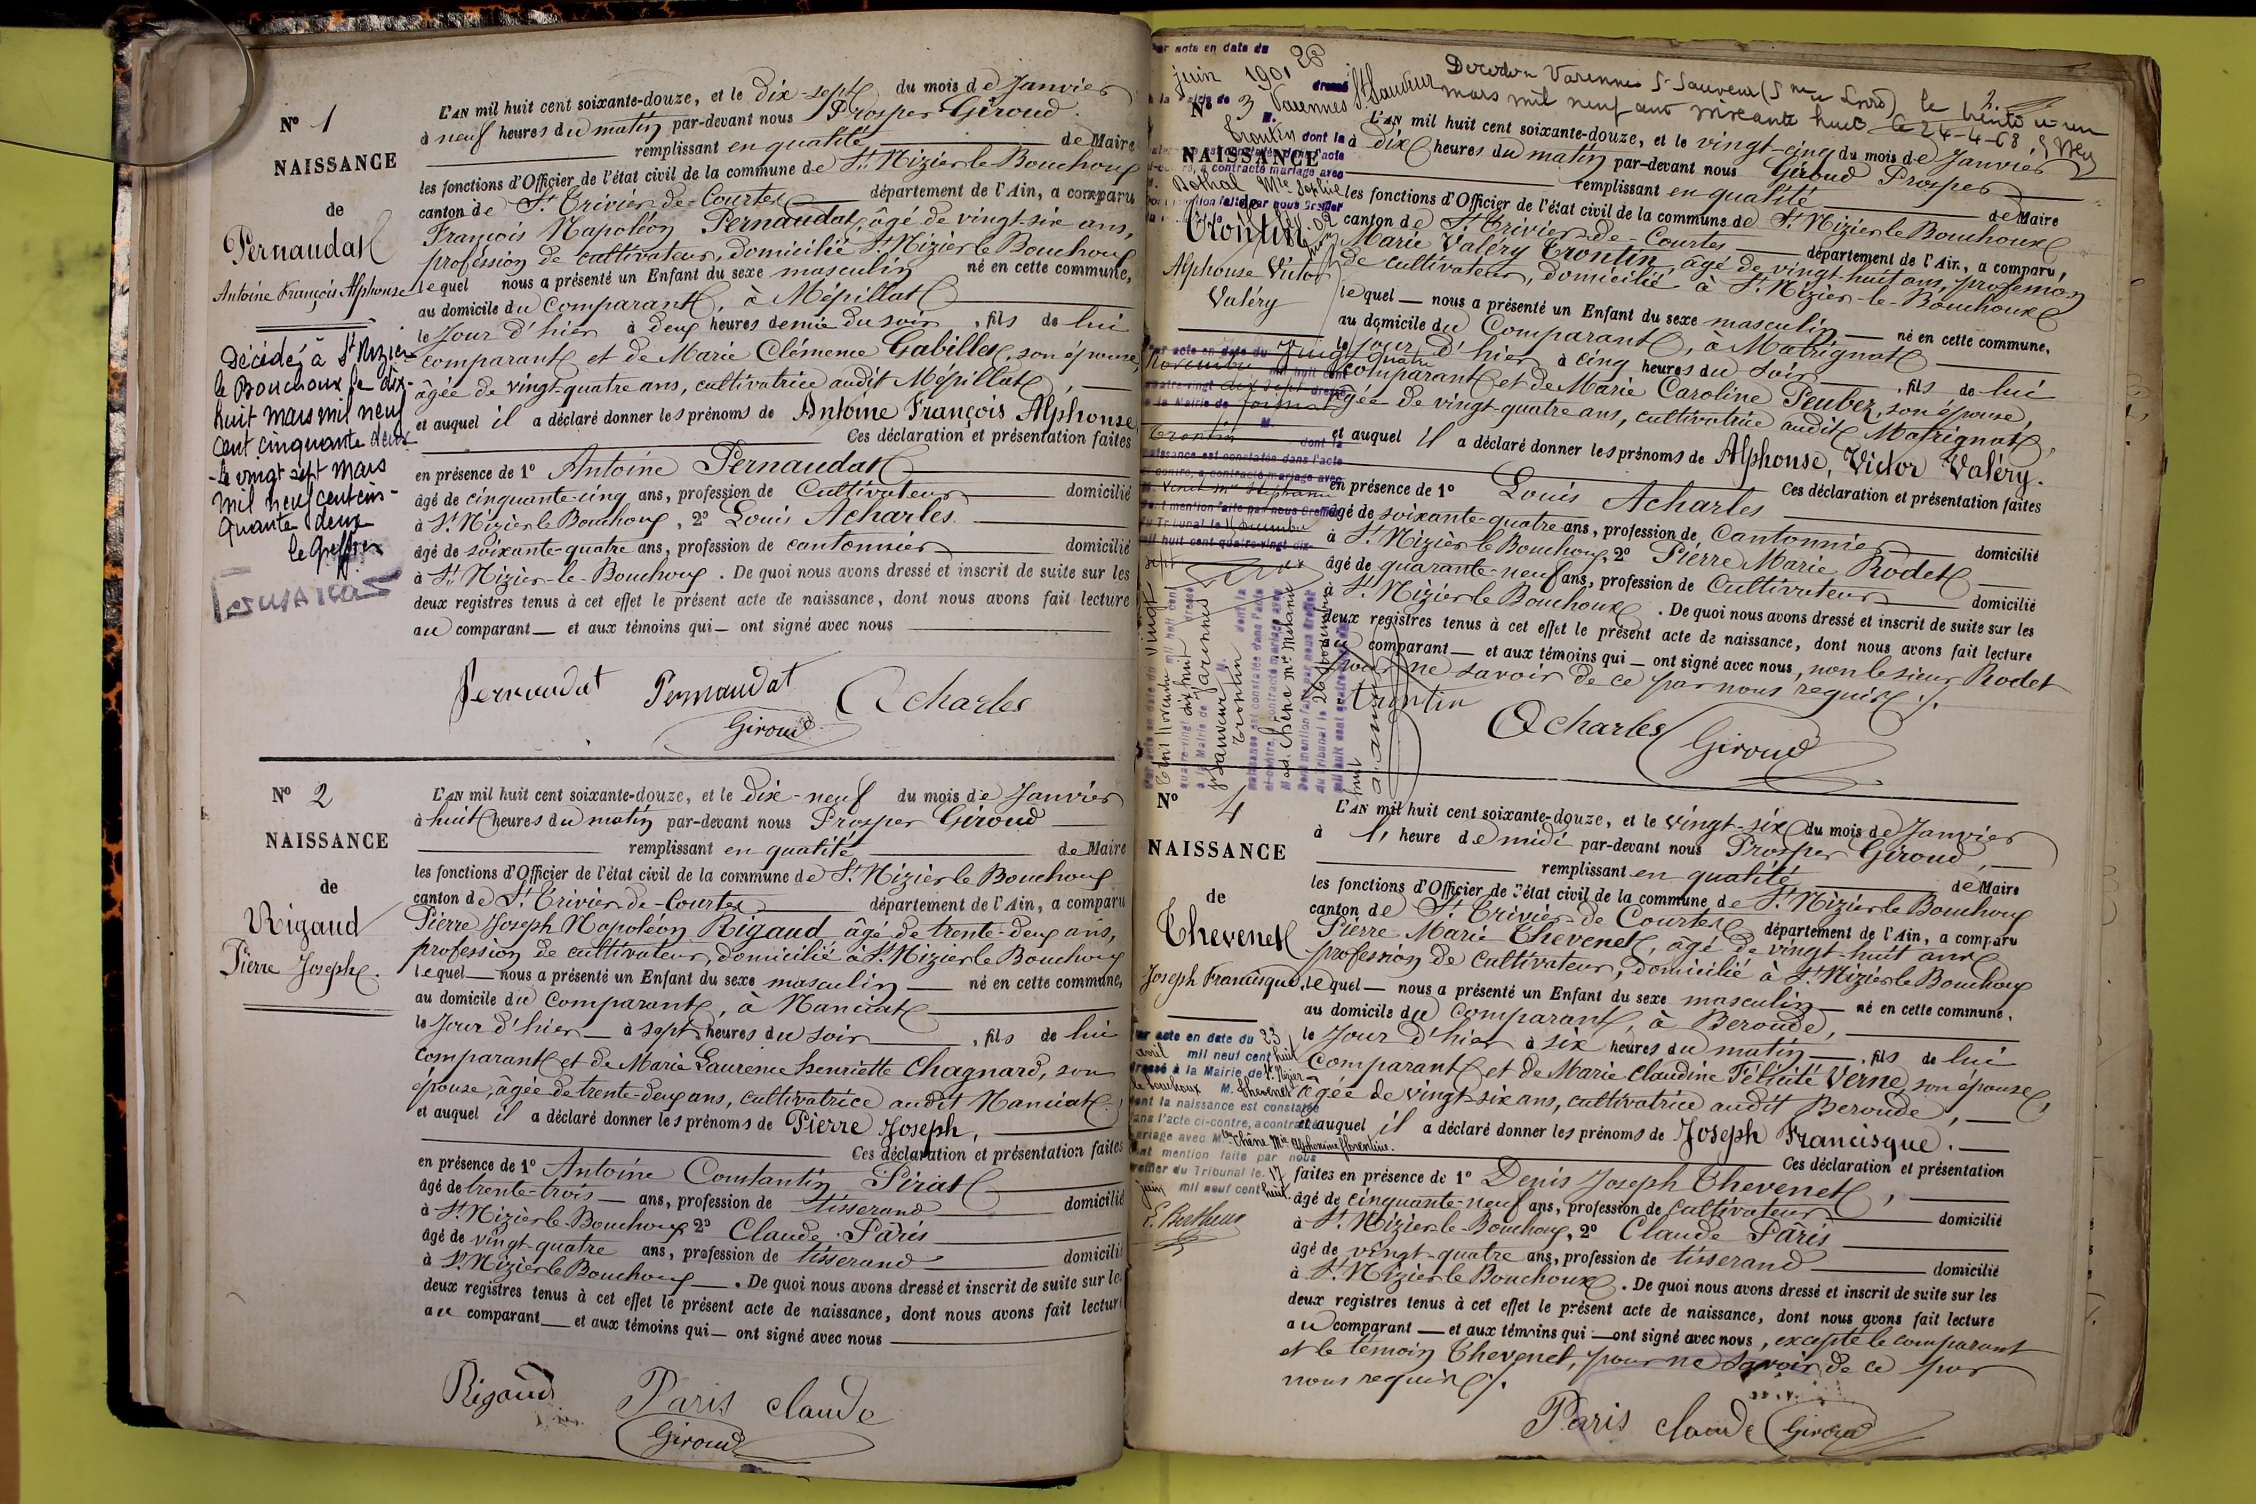 N° 1
NAISSANCE
de
Pernaudat
Antoine François Alphonse
Décédé à St Nizier
le Bouchoux le dix-
huit mars mil neuf
cent cinquante deux
le vingt sept mars
mil neuf cent cin-
quante deux
le Greffier
L'AN mil huit cent soixante-douze, et le dix-sept du mois de Janvier
à neuf heures du matin par-devant nous Prosper Giroud
remplissant en qualité de Maire
les fonctions d'Officier de l'état civil de la commune de St Nizier le Bouchoux
canton de St Trivier-de-Courtes département de l'Ain, a comparu
François Napoléon Pernaudat, âgé de vingt-six ans,
profession de cultivateur, domicilié St Nizier le Bouchoux
lequel nous a présenté un Enfant du sexe masculin né en cette commune,
au domicile du Comparant, à Mépillat
le Jour d'hier à deux heures demie du soir, fils de lui
comparant et de Marie Clémence Gabillet, son épouse,
âgée de vingt-quatre ans, cultivatrice audit Mépillat,
et auquel il a déclaré donner les prénoms de Antoine François Alphonse
Ces déclaration et présentation faites
en présence de 1° Antoine Pernaudat
âgé de cinquante-cinq ans, profession de Cultivateur domicilié
à St Nizier le Bouchoux, 2° Louis Acharles
âgé de soixante-quatre ans, profession de cantonnier domicilié
à St Nizier-le-Bouchoux. De quoi nous avons dressé et inscrit de suite sur les
deux registres tenus à cet effet le présent acte de naissance, dont nous avons fait lecture
au comparant et aux témoins qui ont signé avec nous
Pernaudat Pernaudat Acharles
Giroud
N° 2
NAISSANCE
de
Rigaud
Pierre Joseph.
L'AN mil huit cent soixante-douze, et le dix-neuf du mois de Janvier
à huit heures du matin par-devant nous Prosper Giroud
remplissant en qualité de Maire
les fonctions d'Officier de l'état civil de la commune de St Nizier le Bouchoux
canton de St Trivier-de-Courtes département de l'Ain, a comparu
Pierre Joseph Napoléon Rigaud âgé de trente-deux ans,
profession de cultivateur, domicilié à St Nizier le Bouchoux
lequel nous a présenté un Enfant du sexe masculin né en cette commune,
au domicile du Comparant, à Nanciat
le Jour d'hier à sept heures du soir, fils de lui
comparant et de Marie Laurence henriette Chagnard, son
épouse, âgée de trente-deux ans, cultivatrice audit Nanciat
et auquel il a déclaré donner les prénoms de Pierre Joseph,
Ces déclaration et présentation faites
en présence de 1° Antoine Constantin Pirat
âgé de trente-trois ans, profession de tisserand domicilié
à St Nizier le Bouchoux, 2° Claude Pâris
âgé de vingt-quatre ans, profession de tisserand domicilié
à St Nizier le Bouchoux. De quoi nous avons dressé et inscrit de suite sur les
deux registres tenus à cet effet le présent acte de naissance, dont nous avons fait lecture
au comparant et aux témoins qui ont signé avec nous
Rigaud Paris claude
Giroud
2.
mars mil neuf cent soixante huit le 24-4-68
juin 1901
N° 3
NAISSANCE
de
Trontin
Alphonse Victor
Valéry
L'AN mil huit cent soixante-douze, et le vingt-cinq du mois de Janvier
à dix heures du matin par-devant nous Giroud Prosper
remplissant en qualité de Maire
les fonctions d'Officier de l'état civil de la commune de St Nizier le Bouchoux
canton de St Trivier-de-Courtes département de l'Ain, a comparu,
Marie Valéry Trontin, âgé de vingt-huit ans, profession
de cultivateur, domicilié à St Nizier-le-Bouchoux
lequel nous a présenté un Enfant du sexe masculin né en cette commune,
au domicile du Comparant, à Matrignat
le jour d'hier à cinq heures du soir, fils de lui
comparant et de Marie Caroline Peubez, son épouse,
âgée de vingt-quatre ans, cultivatrice audit Matrignat,
et auquel il a déclaré donner les prénoms de Alphonse, Victor Valéry.
Ces déclaration et présentation faites
en présence de 1° Louis Acharles
âgé de soixante-quatre ans, profession de Cantonnier domicilié
à St Nizier le Bouchoux, 2° Pierre Marie Rodet
âgé de quarante-neuf ans, profession de Cultivateur domicilié
à St Nizier le Bouchoux. De quoi nous avons dressé et inscrit de suite sur les
deux registres tenus à cet effet le présent acte de naissance, dont nous avons fait lecture
au comparant et aux témoins qui ont signé avec nous, non le sieur Rodet
pour ne savoir de ce par nous requis.
Trontin Acharles Giroud
N° 4
NAISSANCE
de
Thevenet
Joseph Francisque
Par acte en date du 23
avril mil neuf cent huit
dressé à la Mairie de St Nizier
le Bouchoux M. Thevenet
dont la naissance est constatée
dans l'acte ci-contre, a contracté
mariage avec Mlle Chêne Mie Alphonsine florentine.
dont mention faite par nous
Greffier du Tribunal le 17
juin mil neuf cent huit.
L'AN mil huit cent soixante-douze, et le vingt-six du mois de Janvier
à l' heure de midi par-devant nous Prosper Giroud,
remplissant en qualité de Maire
les fonctions d'Officier de l'état civil de la commune de St Nizier le Bouchoux
canton de St Trivier-de Courtes département de l'Ain, a comparu
Pierre Marie Thevenet, âgé de vingt-huit ans
profession de cultivateur, domicilié à St Nizier le Bouchoux
lequel nous a présenté un Enfant du sexe masculin né en cette commune,
au domicile du Comparant, à Beroude,
le Jour d'hier à six heures du matin, fils de lui
Comparant et de Marie Claudine Félicité Verne, son épouse,
âgée de vingt-six ans, cultivatrice audit Beroude,
et auquel il a déclaré donner les prénoms de Joseph Francisque.
Ces déclaration et présentation
faites en présence de 1° Denis Joseph Thevenet,
âgé de cinquante-neuf ans, profession de cultivateur domicilié
à St Nizier le Bouchoux, 2° Claude Pâris
âgé de vingt-quatre ans, profession de tisserand domicilié
à St Nizier le Bouchoux. De quoi nous avons dressé et inscrit de suite sur les
deux registres tenus à cet effet le présent acte de naissance, dont nous avons fait lecture
au comparant et aux témoins qui ont signé avec nous, excepté le comparant
et le témoin Thevenet, pour ne savoir de ce par
nous requis.
Paris claude Giroud